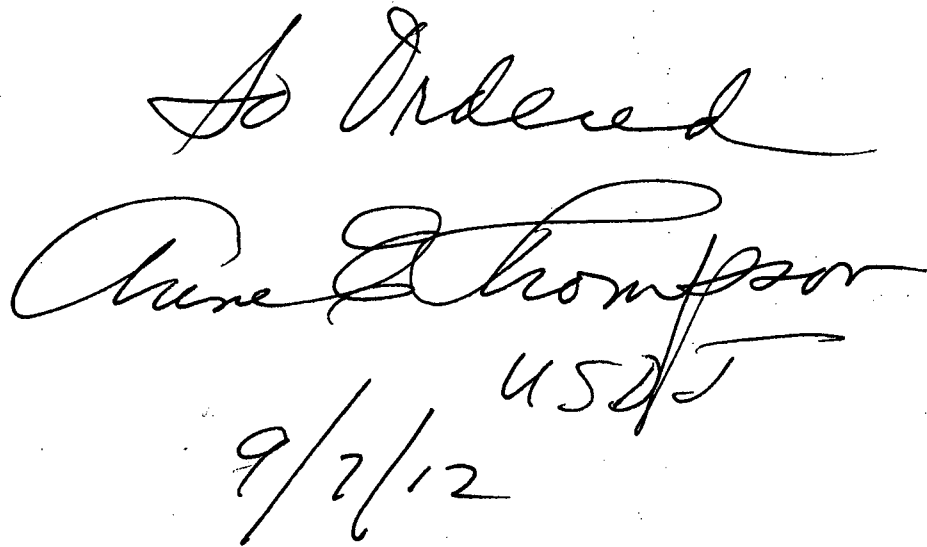 So Ordered
Anne E Thompson
USDJ
9/7/12